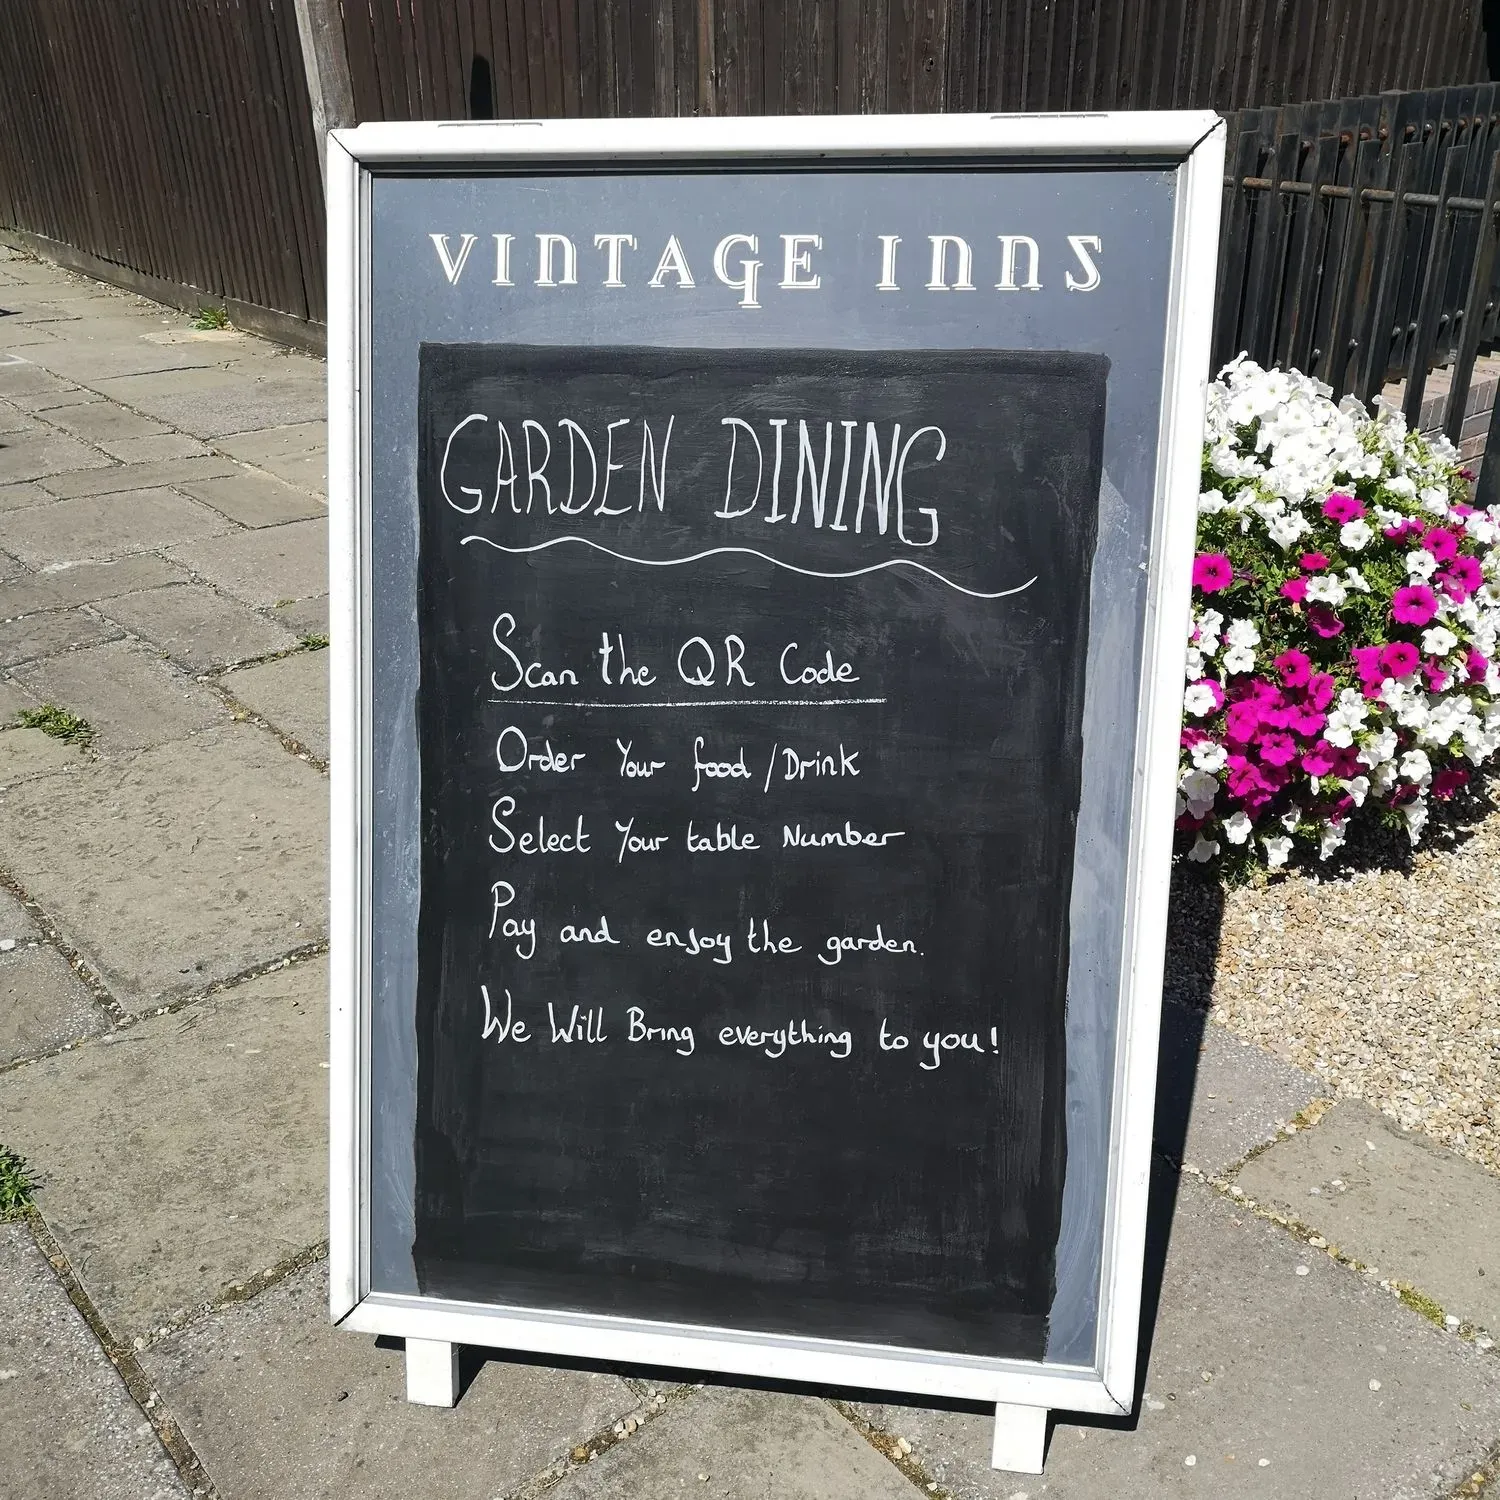 VINTAGE INNS
GARDEN DINING
Scan the QR Code
Order Your food / Drink
Select Your table Number
Pay and enjoy the garden.
We Will Bring everything to you!